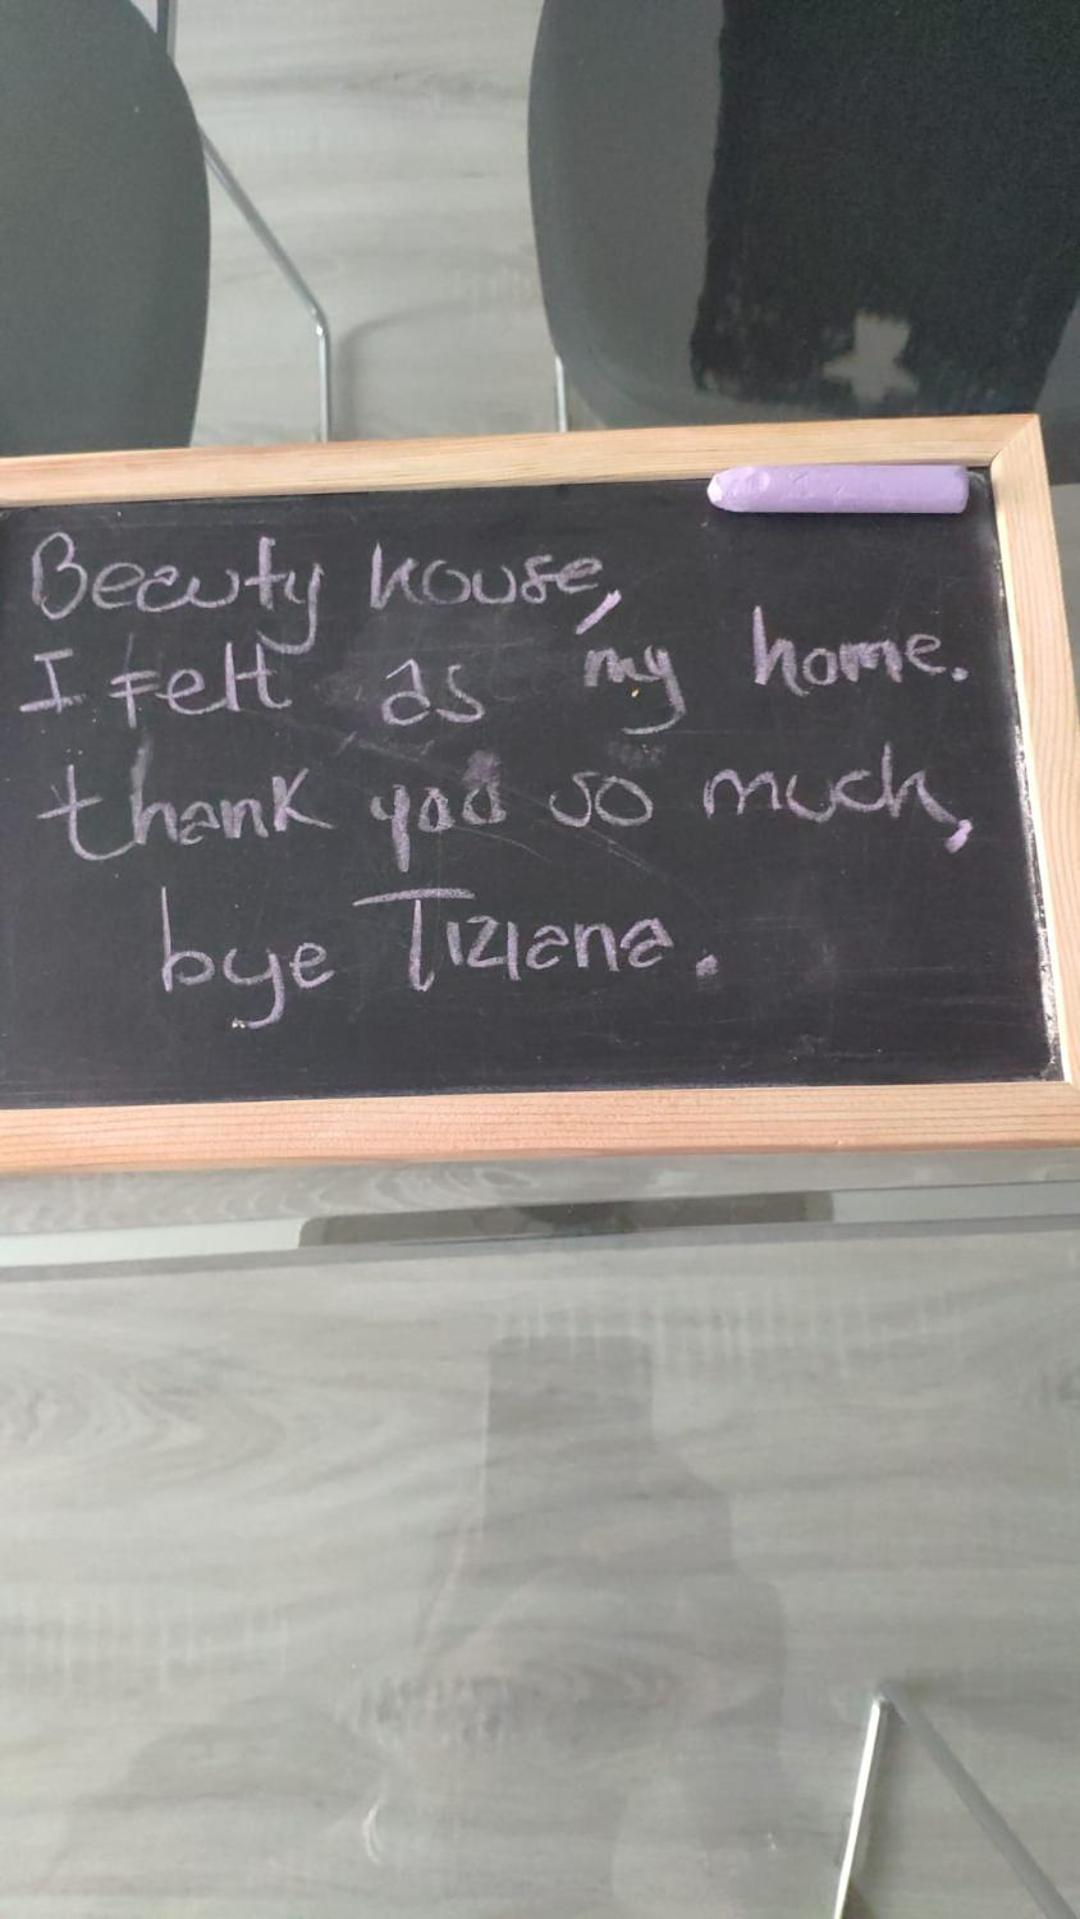 Beauty house,
I felt as my home.
thank you so much,
bye Tiziana.